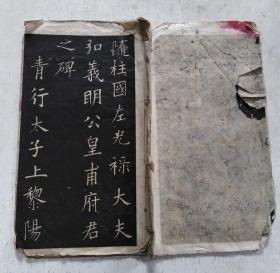 隨柱國左光祿大夫
弘義明公皇甫府君
之碑
青行太子上黎陽